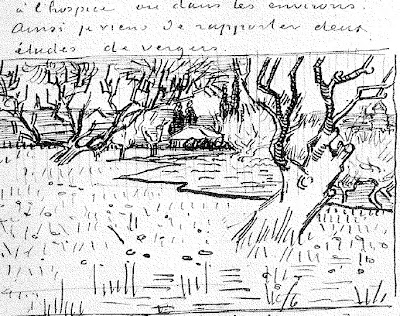 à l'hospice ou dans les environs.
Ainsi je viens de rapporter deux
études de vergers.